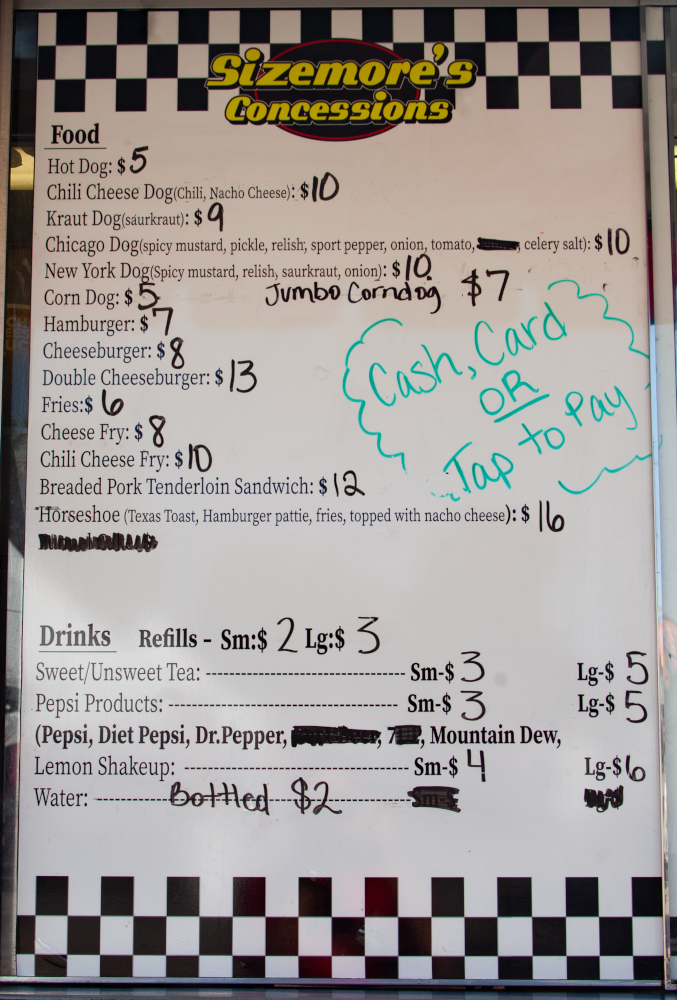 Sizemore's
Concessions
Food
Hot Dog: $5
Chili Cheese Dog(Chili, Nacho Cheese): $10
Kraut Dog(saurkraut): $9
Chicago Dog(spicy mustard, pickle, relish, sport pepper, onion, tomato, , celery salt): $10
New York Dog(Spicy mustard, relish, saurkraut, onion): $10
Corn Dog: $5 Jumbo Corndog $7
Hamburger: $7
Cheeseburger: $8
Double Cheeseburger: $13
Fries:$6
Cheese Fry: $8
Chili Cheese Fry: $10
Breaded Pork Tenderloin Sandwich: $12
Horseshoe (Texas Toast, Hamburger pattie, fries, topped with nacho cheese): $16
Cash, Card
OR
Tap to Pay
Drinks Refills - Sm:$2 Lg:$3
Sweet/Unsweet Tea: ---------- Sm-$3 Lg-$5
Pepsi Products: ---------- Sm-$3 Lg-$5
(Pepsi, Diet Pepsi, Dr.Pepper, , 7, Mountain Dew,
Lemon Shakeup: ---------- Sm-$4 Lg-$6
Water: ---------- Bottled $2